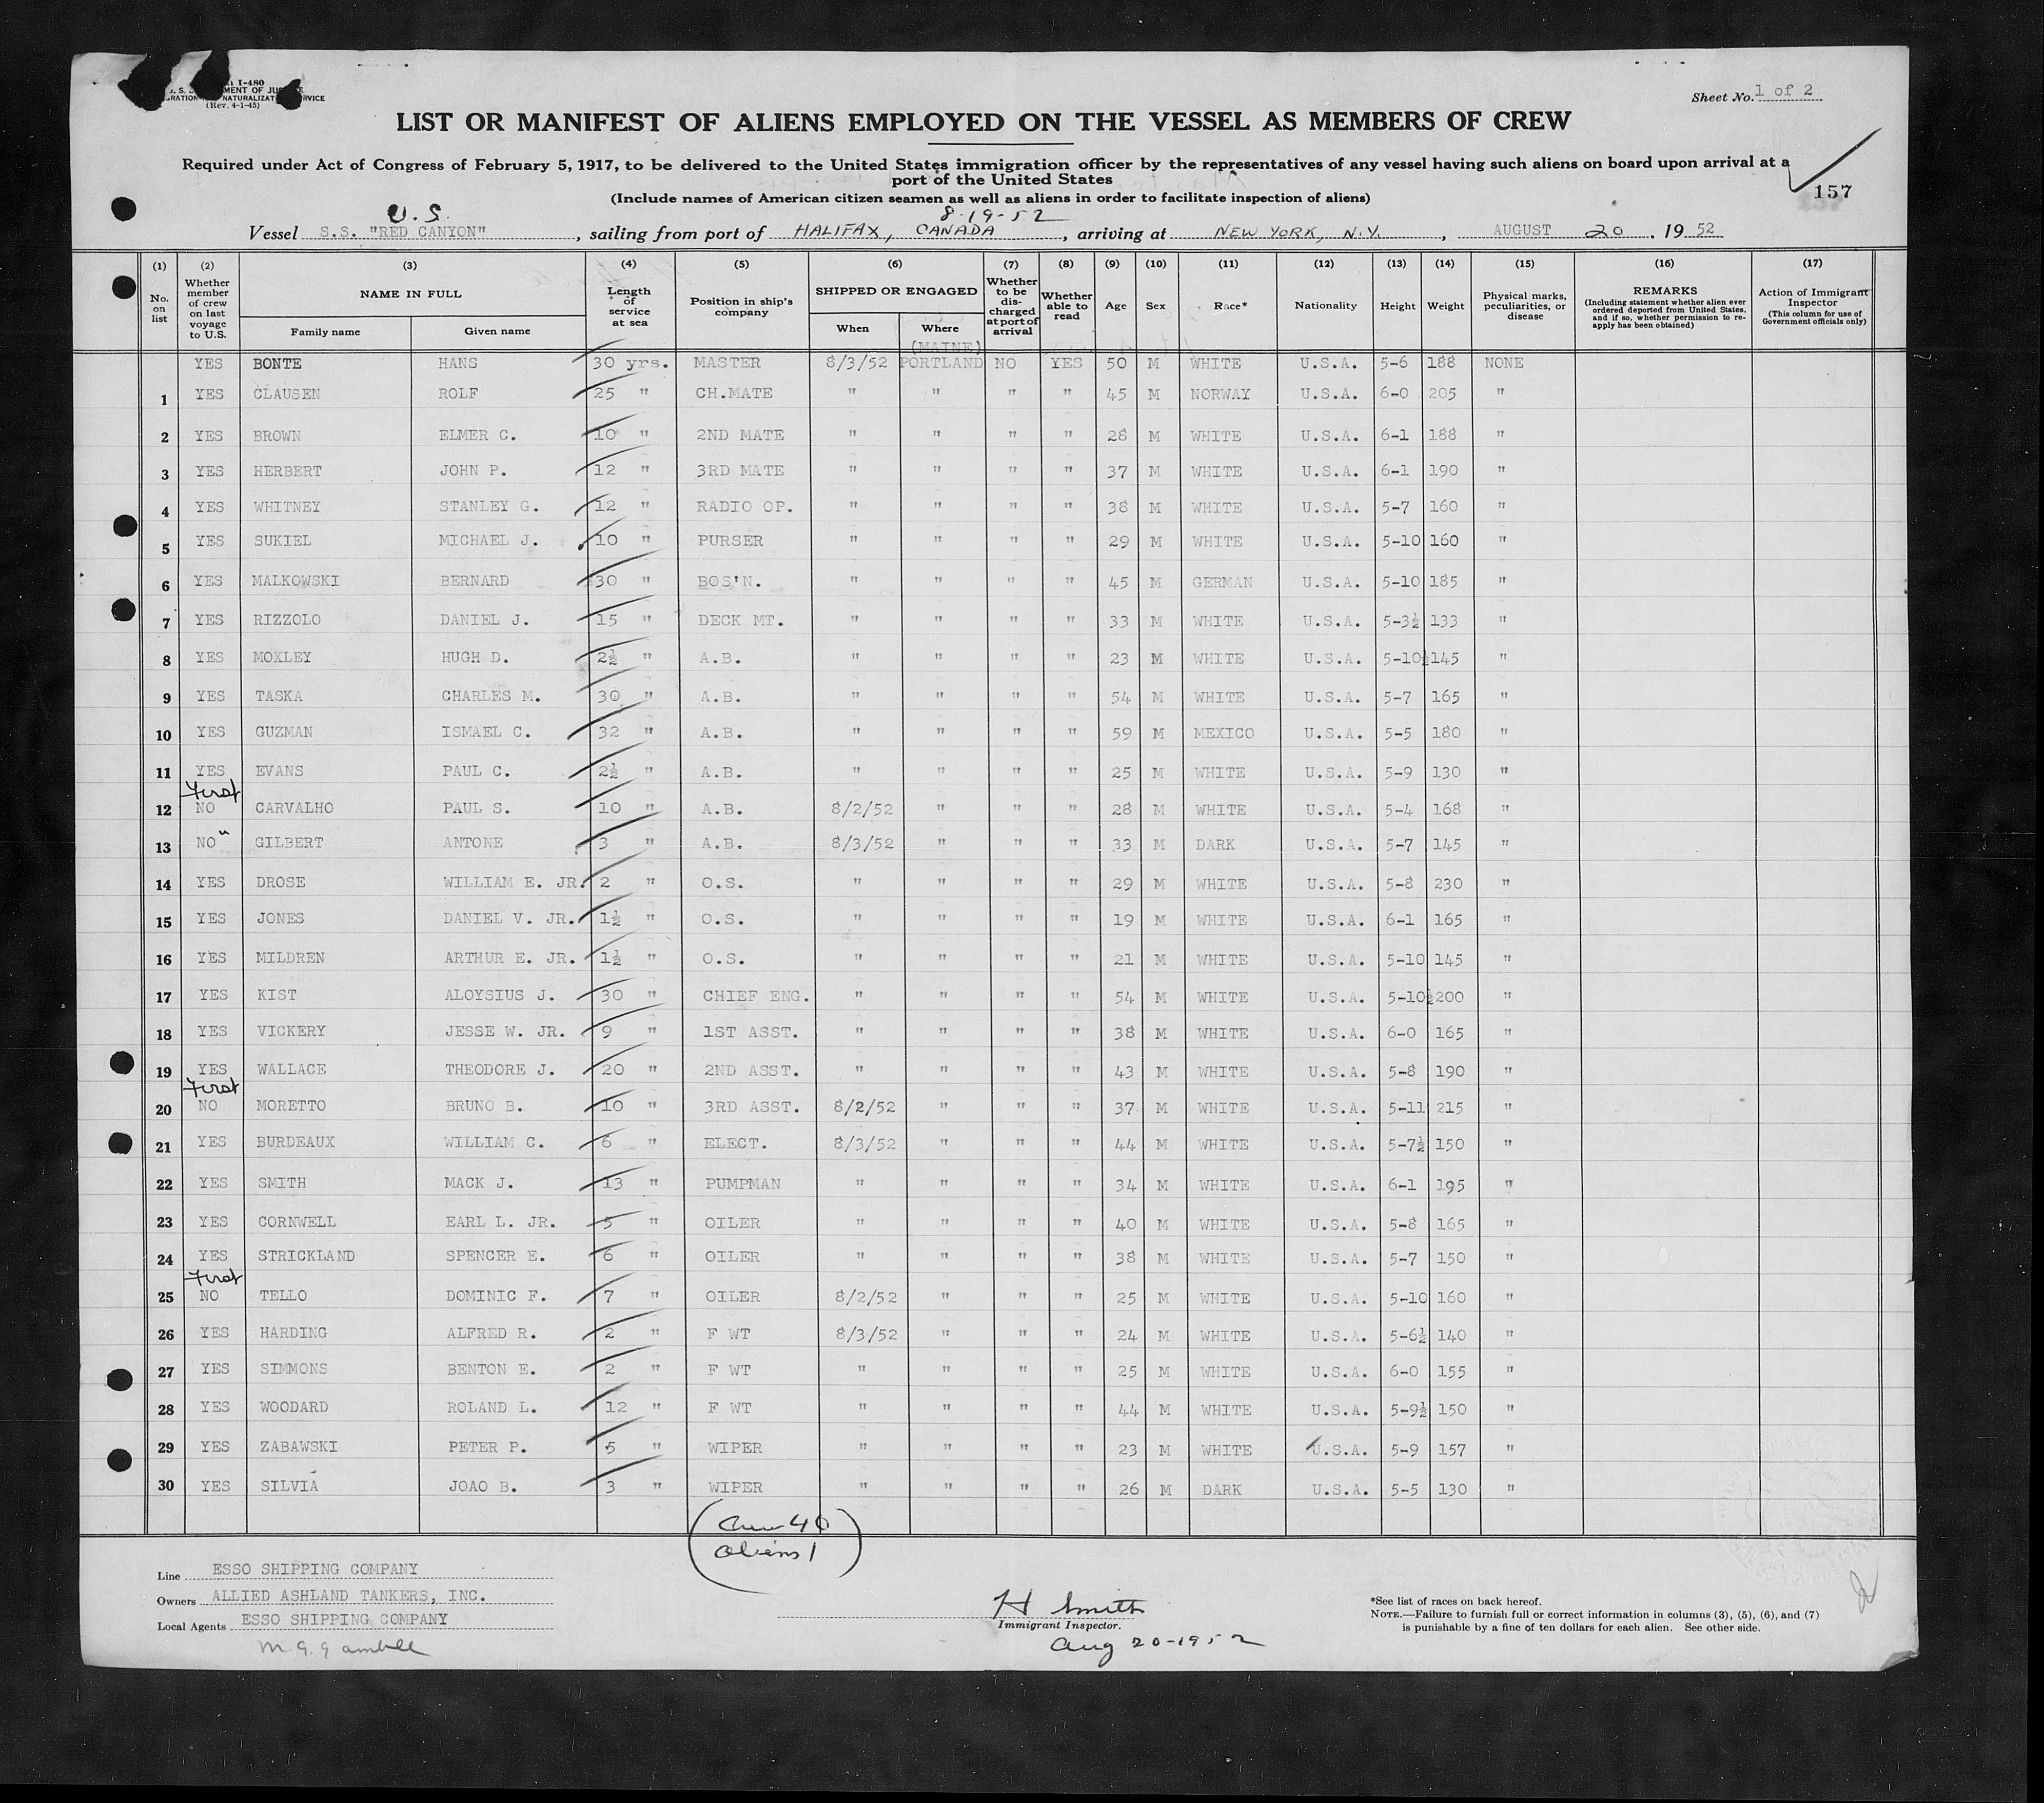 I-480
(Rev. 4-1-45)
Sheet No. 1 of 2
LIST OR MANIFEST OF ALIENS EMPLOYED ON THE VESSEL AS MEMBERS OF CREW
Required under Act of Congress of February 5, 1917, to be delivered to the United States immigration officer by the representatives of any vessel having such aliens on board upon arrival at a
port of the United States
157
(Include names of American citizen seamen as well as aliens in order to facilitate inspection of aliens)
U.S. 8-19-52
Vessel S.S. "RED CANYON", sailing from port of HALIFAX, CANADA, arriving at NEW YORK, N.Y., AUGUST 20, 1952
(1) (2) (3) (4) (5) (6) (7) (8) (9) (10) (11) (12) (13) (14) (15) (16) (17)
No. on list | Whether member of crew on last voyage to U.S. | NAME IN FULL | Family name | Given name | Length of service at sea | Position in ship's company | SHIPPED OR ENGAGED | When | Where | Whether to be discharged at port of arrival | Whether able to read | Age | Sex | Race* | Nationality | Height | Weight | Physical marks, peculiarities, or disease | REMARKS (Including statement whether alien ever ordered deported from United States, and if so, whether permission to reapply has been obtained) | Action of Immigrant Inspector (This column for use of Government officials only)
(MAINE)
YES BONTE HANS 30 yrs. MASTER 8/3/52 PORTLAND NO YES 50 M WHITE U.S.A. 5-6 188 NONE
1 YES CLAUSEN ROLF 25 " CH.MATE " " " " 45 M NORWAY U.S.A. 6-0 205 "
2 YES BROWN ELMER C. 10 " 2ND MATE " " " " 28 M WHITE U.S.A. 6-1 188 "
3 YES HERBERT JOHN P. 12 " 3RD MATE " " " " 37 M WHITE U.S.A. 6-1 190 "
4 YES WHITNEY STANLEY G. 12 " RADIO OP. " " " " 38 M WHITE U.S.A. 5-7 160 "
5 YES SUKIEL MICHAEL J. 10 " PURSER " " " " 29 M WHITE U.S.A. 5-10 160 "
6 YES MALKOWSKI BERNARD 30 " BOS'N. " " " " 45 M GERMAN U.S.A. 5-10 185 "
7 YES RIZZOLO DANIEL J. 15 " DECK MT. " " " " 33 M WHITE U.S.A. 5-3½ 133 "
8 YES MOXLEY HUGH D. 2½ " A.B. " " " " 23 M WHITE U.S.A. 5-10½ 145 "
9 YES TASKA CHARLES M. 30 " A.B. " " " " 54 M WHITE U.S.A. 5-7 165 "
10 YES GUZMAN ISMAEL C. 32 " A.B. " " " " 59 M MEXICO U.S.A. 5-5 180 "
11 YES EVANS PAUL C. 2½ " A.B. " " " " 25 M WHITE U.S.A. 5-9 130 "
First
12 NO CARVALHO PAUL S. 10 " A.B. 8/2/52 " " " 28 M WHITE U.S.A. 5-4 168 "
13 NO " GILBERT ANTONE 3 " A.B. 8/3/52 " " " 33 M DARK U.S.A. 5-7 145 "
14 YES DROSE WILLIAM E. JR. 2 " O.S. " " " " 29 M WHITE U.S.A. 5-8 230 "
15 YES JONES DANIEL V. JR. 1½ " O.S. " " " " 19 M WHITE U.S.A. 6-1 165 "
16 YES MILDREN ARTHUR E. JR. 1½ " O.S. " " " " 21 M WHITE U.S.A. 5-10 145 "
17 YES KIST ALOYSIUS J. 30 " CHIEF ENG. " " " " 54 M WHITE U.S.A. 5-10½ 200 "
18 YES VICKERY JESSE W. JR. 9 " 1ST ASST. " " " " 38 M WHITE U.S.A. 6-0 165 "
19 YES WALLACE THEODORE J. 20 " 2ND ASST. " " " " 43 M WHITE U.S.A. 5-8 190 "
First
20 NO MORETTO BRUNO B. 10 " 3RD ASST. 8/2/52 " " " 37 M WHITE U.S.A. 5-11 215 "
21 YES BURDEAUX WILLIAM C. 6 " ELECT. 8/3/52 " " " 44 M WHITE U.S.A. 5-7½ 150 "
22 YES SMITH MACK J. 13 " PUMPMAN " " " " 34 M WHITE U.S.A. 6-1 195 "
23 YES CORNWELL EARL L. JR. 5 " OILER " " " " 40 M WHITE U.S.A. 5-8 165 "
24 YES STRICKLAND SPENCER E. 6 " OILER " " " " 38 M WHITE U.S.A. 5-7 150 "
First
25 NO TELLO DOMINIC F. 7 " OILER 8/2/52 " " " 25 M WHITE U.S.A. 5-10 160 "
26 YES HARDING ALFRED R. 2 " F WT 8/3/52 " " " 24 M WHITE U.S.A. 5-6½ 140 "
27 YES SIMMONS BENTON E. 2 " F WT " " " " 25 M WHITE U.S.A. 6-0 155 "
28 YES WOODARD ROLAND L. 12 " F WT " " " " 44 M WHITE U.S.A. 5-9½ 150 "
29 YES ZABAWSKI PETER P. 5 " WIPER " " " " 23 M WHITE U.S.A. 5-9 157 "
30 YES SILVIA JOAO B. 3 " WIPER " " " " 26 M DARK U.S.A. 5-5 130 "
Crew 40
aliens 1
Line ESSO SHIPPING COMPANY
Owners ALLIED ASHLAND TANKERS, INC.
Local Agents ESSO SHIPPING COMPANY
M. G. Gamble
H Smith
Immigrant Inspector.
Aug 20-1952
*See list of races on back hereof.
NOTE.—Failure to furnish full or correct information in columns (3), (5), (6), and (7)
is punishable by a fine of ten dollars for each alien. See other side.